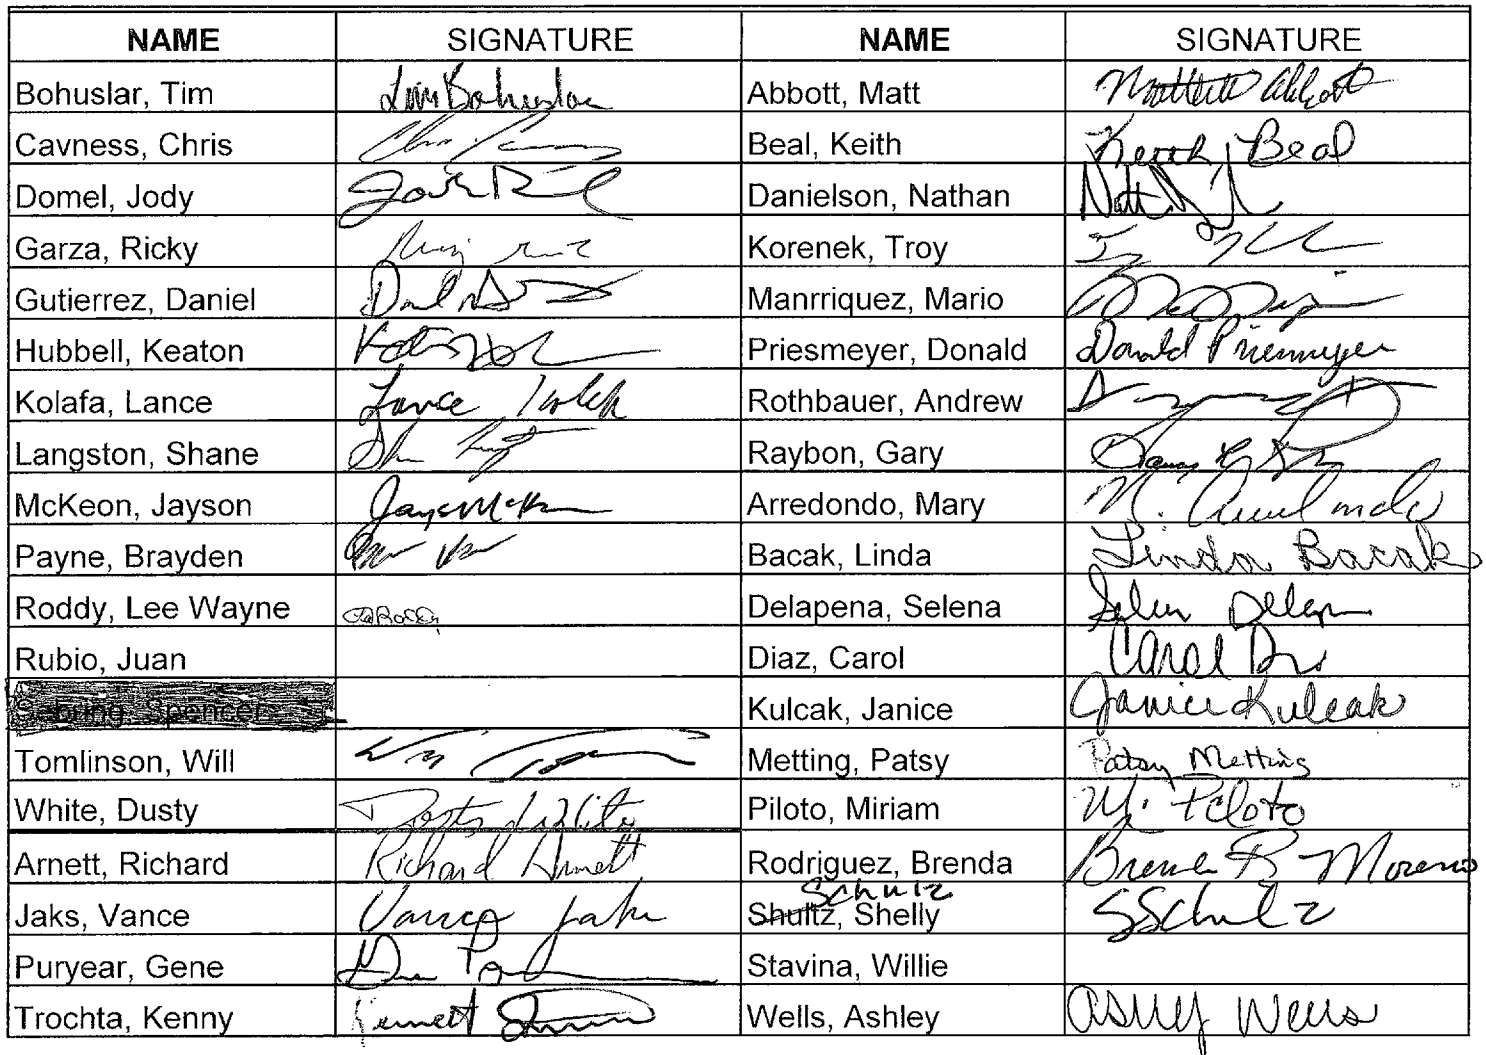 NAME SIGNATURE NAME SIGNATURE
Bohuslar, Tim Tim Bohuslar Abbott, Matt Matthew Abbott
Cavness, Chris Beal, Keith Keith Beal
Domel, Jody Danielson, Nathan
Garza, Ricky Korenek, Troy
Gutierrez, Daniel Manrriquez, Mario
Hubbell, Keaton Priesmeyer, Donald Donald Priesmeyer
Kolafa, Lance Lance Kolafa Rothbauer, Andrew
Langston, Shane Raybon, Gary
McKeon, Jayson Arredondo, Mary M. Arredondo
Payne, Brayden Bacak, Linda Linda Bacak
Roddy, Lee Wayne Delapena, Selena
Rubio, Juan Diaz, Carol Carol
Kulcak, Janice Janice Kulcak
Tomlinson, Will Metting, Patsy Patsy Metting
White, Dusty Dusty White Piloto, Miriam M. Piloto
Arnett, Richard Richard Arnett Rodriguez, Brenda Brenda R Moreno
Schulz
Jaks, Vance Vance Jaks Shultz, Shelly SSchulz
Puryear, Gene Stavina, Willie
Trochta, Kenny Wells, Ashley Ashley Wells